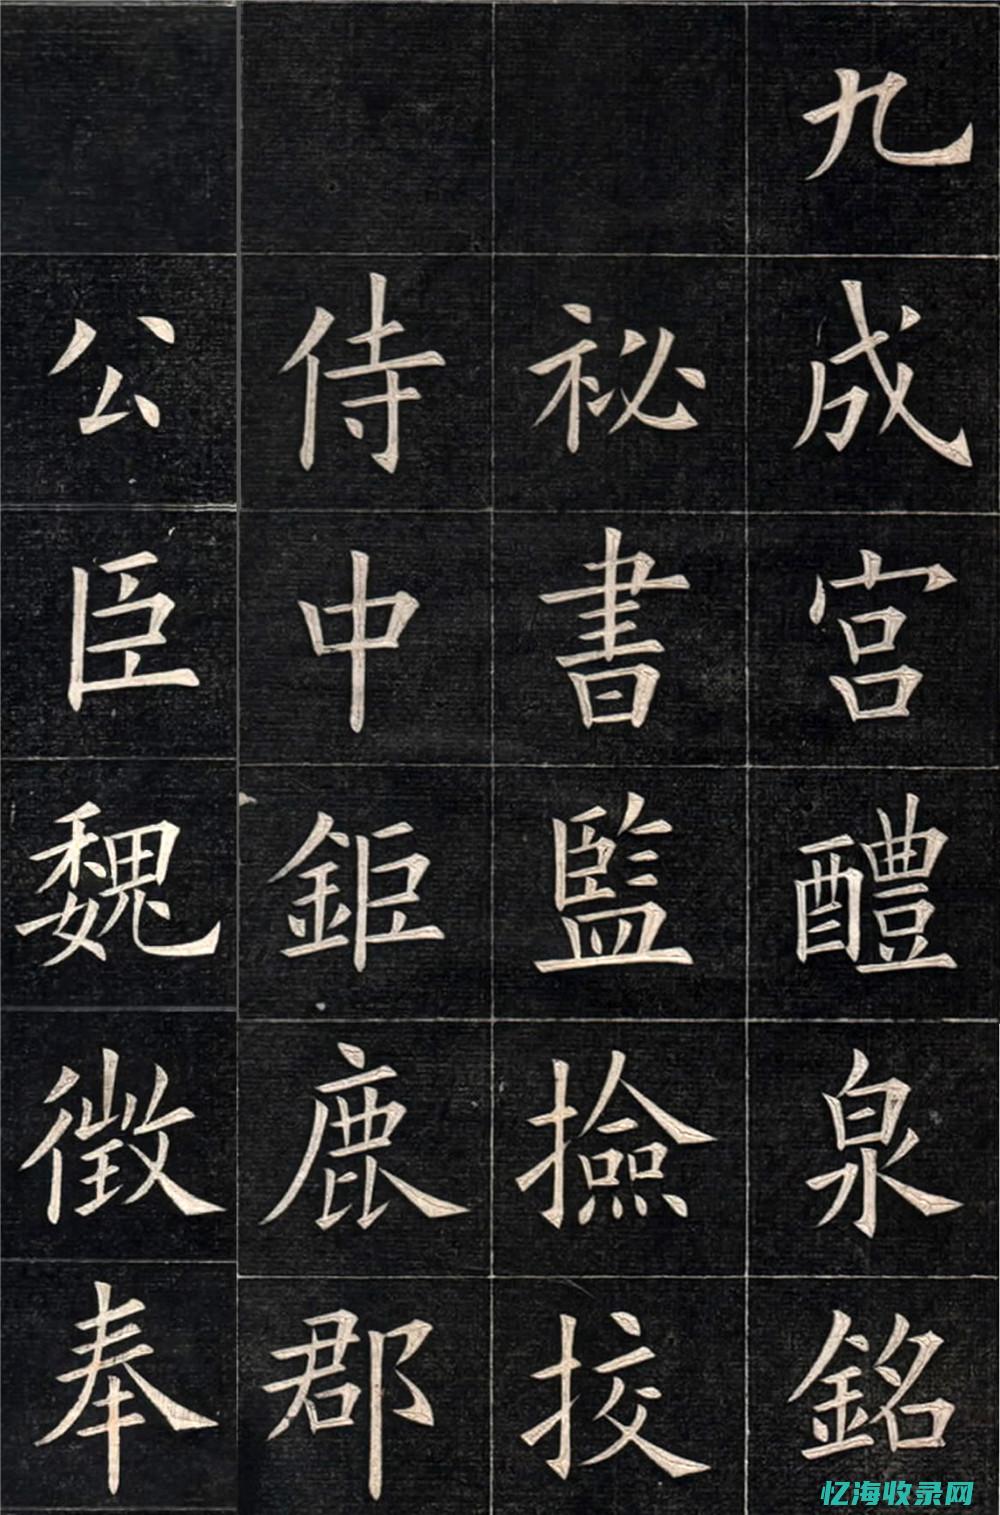 九成宮醴泉銘
祕書監撿挍
侍中鉅鹿郡
公臣魏徵奉
忆海收录网